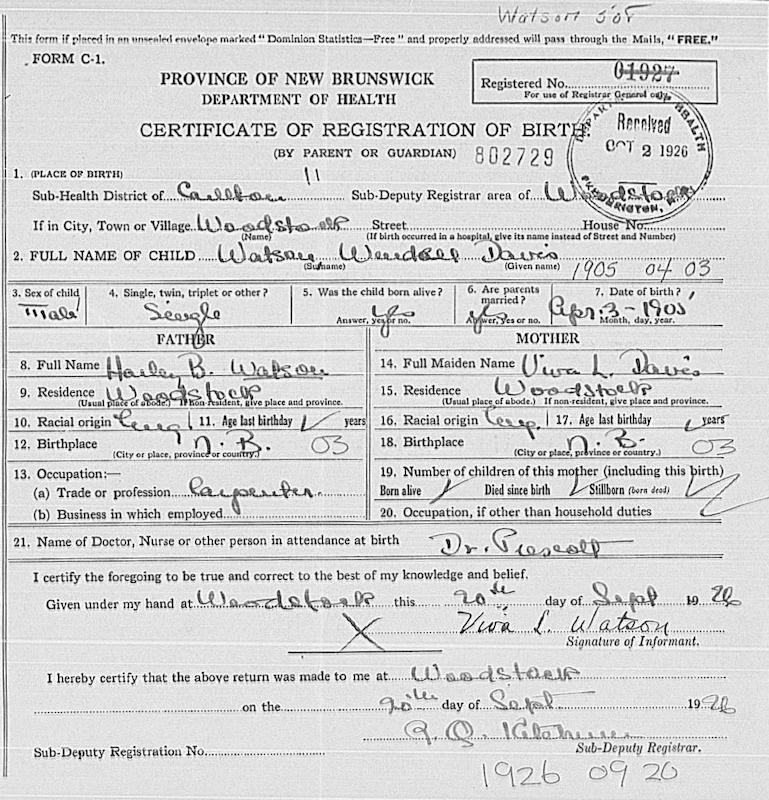 Watson
This form if placed in an unsealed envelope marked "Dominion Statistics—Free" and properly addressed will pass through the Mails, "FREE."
FORM C-1.
PROVINCE OF NEW BRUNSWICK
DEPARTMENT OF HEALTH
Registered No. 01927
For use of Registrar General only
CERTIFICATE OF REGISTRATION OF BIRTH
(BY PARENT OR GUARDIAN) 802729
DEPARTMENT OF HEALTH
Received
OCT 2 1926
FREDERICTON, N.B.
1. (PLACE OF BIRTH) 11
Sub-Health District of Carleton Sub-Deputy Registrar area of Woodstock
If in City, Town or Village Woodstock Street House No.
(Name) (If birth occurred in a hospital, give its name instead of Street and Number)
2. FULL NAME OF CHILD Watson Wendell Davis
(Surname) (Given name) 1905 04 03
3. Sex of child 4. Single, twin, triplet or other? 5. Was the child born alive? 6. Are parents married? 7. Date of birth?
Male Single Yes Yes Apr. 3 - 1905
Answer, yes or no. Answer, yes or no. Month, day, year.
FATHER MOTHER
8. Full Name Harley B. Watson 14. Full Maiden Name Viva L. Davis
9. Residence Woodstock 15. Residence Woodstock
(Usual place of abode.) If non-resident, give place and province. (Usual place of abode.) If non-resident, give place and province.
10. Racial origin Eng 11. Age last birthday years 16. Racial origin Eng. 17. Age last birthday years
12. Birthplace N. B. 03 18. Birthplace N. B. 03
(City or place, province or country.) (City or place, province or country.)
13. Occupation:— 19. Number of children of this mother (including this birth)
(a) Trade or profession Carpenter Born alive Died since birth Stillborn (born dead)
(b) Business in which employed 20. Occupation, if other than household duties
21. Name of Doctor, Nurse or other person in attendance at birth Dr. Prescott
I certify the foregoing to be true and correct to the best of my knowledge and belief.
Given under my hand at Woodstock this 20th day of Sept 1926
X Viva L. Watson
Signature of Informant.
I hereby certify that the above return was made to me at Woodstock
on the 20th day of Sept 1926
Sub-Deputy Registration No. Sub-Deputy Registrar.
1926 09 20